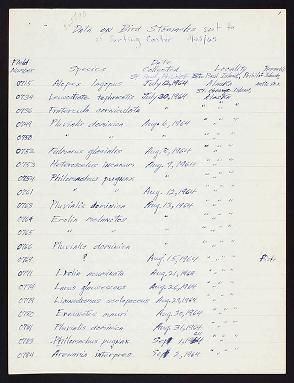 Data on Bird Stomachs sent to
Sorting Center 4/23/65
Field Number Species Date Collected Locality Remarks
St. Paul Island, Pribilof Islands,
0715 Alopex lagopus July 12, 1964 Alaska
St. George Island,
0734 Leucosticte tephrocotis July 30, 1964 Alaska
0736 Fratercula corniculata " " "
0749 Pluvialis dominica Aug. 6, 1964 " "
0750 " " " " "
0752 Fulmarus glacialis Aug. 8, 1964 " "
0753 Heteroscelus incanus Aug. 9, 1964 " "
0754 Philomachus pugnax " " "
0761 " Aug. 12, 1964 " "
0763 Pluvialis dominica Aug. 13, 1964 " "
0764 Erolia melanotos " " "
0765 " " " " "
0766 Pluvialis dominica " " "
0769 ? Aug. 15, 1964 " "
0771 Erolia acuminata Aug. 21, 1964 " "
0774 Larus glaucescens Aug. 26, 1964 " "
0779 Limnodromus scolopaceus Aug. 29, 1964 " "
0780 Ereunetes mauri Aug. 30, 1964 " "
0781 Pluvialis dominica Aug. 31, 1964 " "
0783 Philomachus pugnax Sept 1, 1964 " "
0784 Arenaria interpres Sept 2, 1964 " "